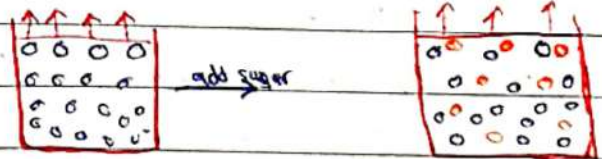 add sugar